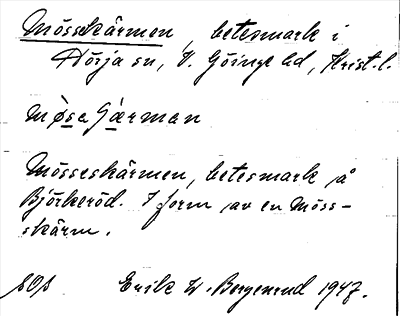 Mösskärmen, betesmark i
Hörja sn, V. Göinge hd, Krist. l.
møsa Gærman
Mösseskärmen, betesmark på
Björkeröd. I form av en möss-
skärm.
Erik W. Bergenrud 1947.